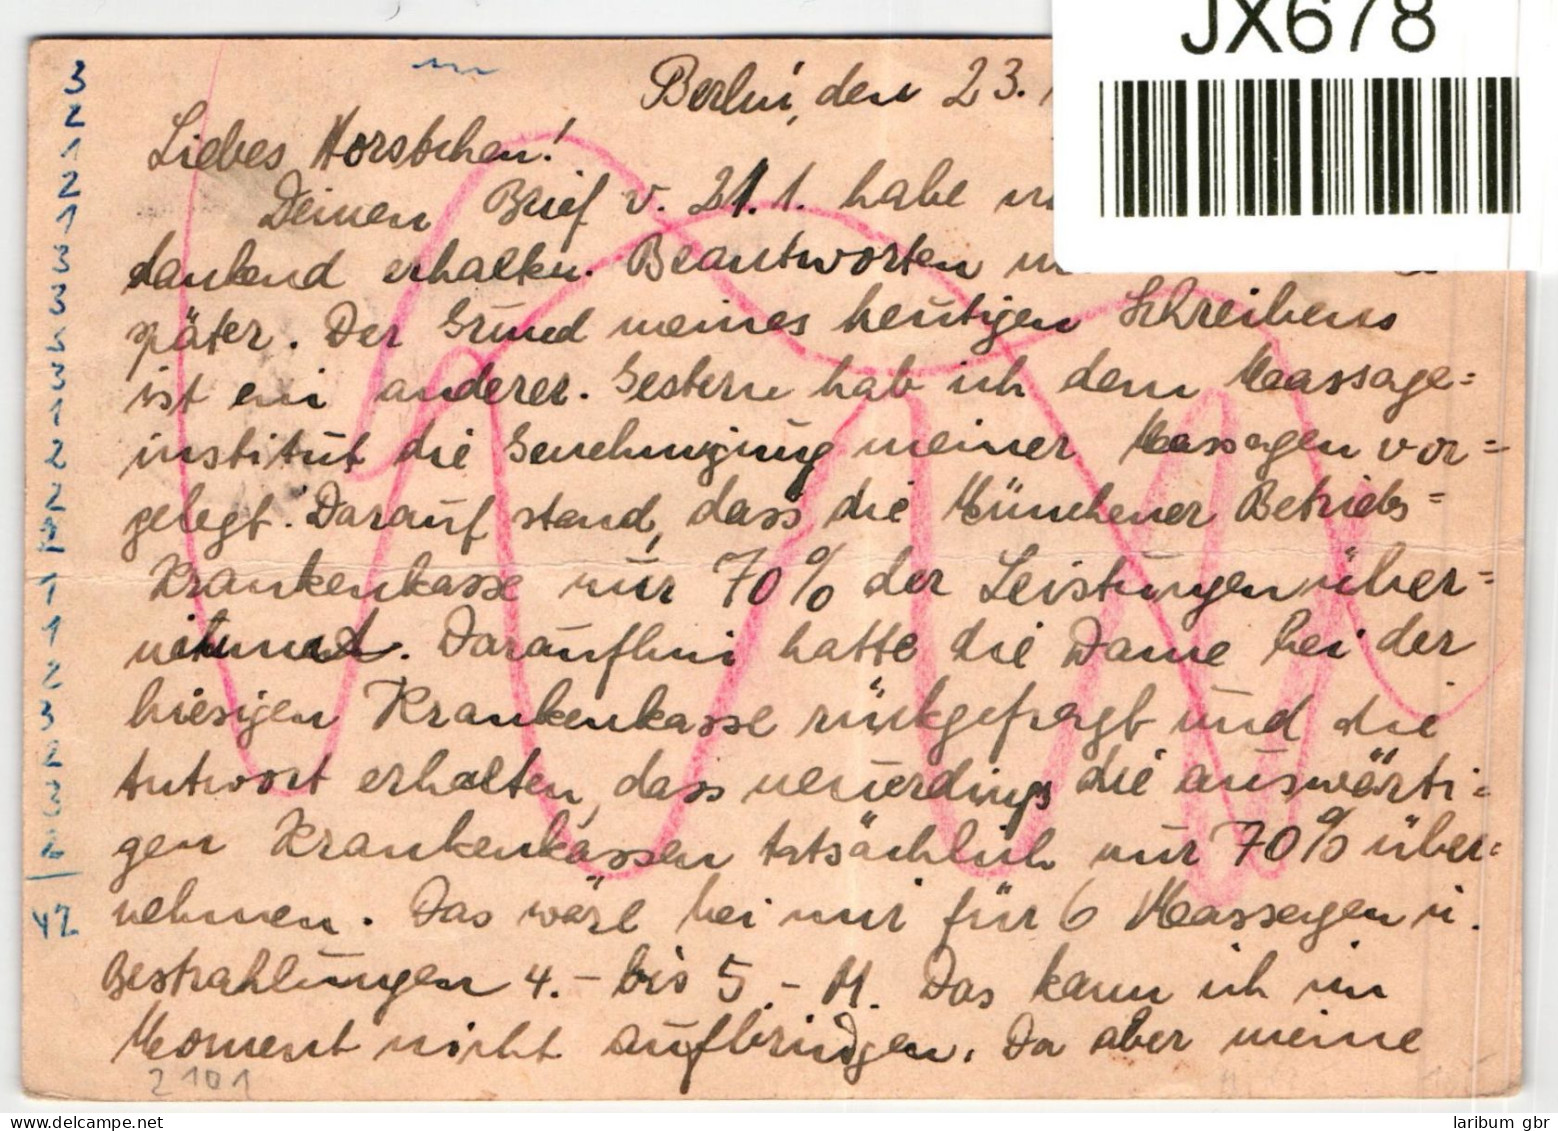 JX678
Berlin, den 23.
Liebes Horstchen!
Deinen Brief v. 21.1. habe
dankend erhalten. Beantworten
später. Der Grund meines heutigen Schreibens
ist ein anderer. Gestern hab ich dem Massage=
institut die Genehmigung meiner Massagen vor=
gelegt. Darauf stand, dass die Münchener Betriebs=
Krankenkasse nur 70% der Leistungen über=
nimmt. Daraufhin hatte die Dame bei der
hiesigen Krankenkasse rückgefragt und die
Antwort erhalten, dass neuerdings die auswärti=
gen Krankenkassen tatsächlich nur 70% über=
nehmen. Das wäre bei mir für 6 Massagen u.
Bestrahlungen 4.- bis 5.- M. Das kann ich im
Moment nicht aufbringen. Da aber meine
3
2
1
2
1
3
3
2
3
1
2
2
1
1
1
2
3
2
3
2
42
2101
laribum gbr